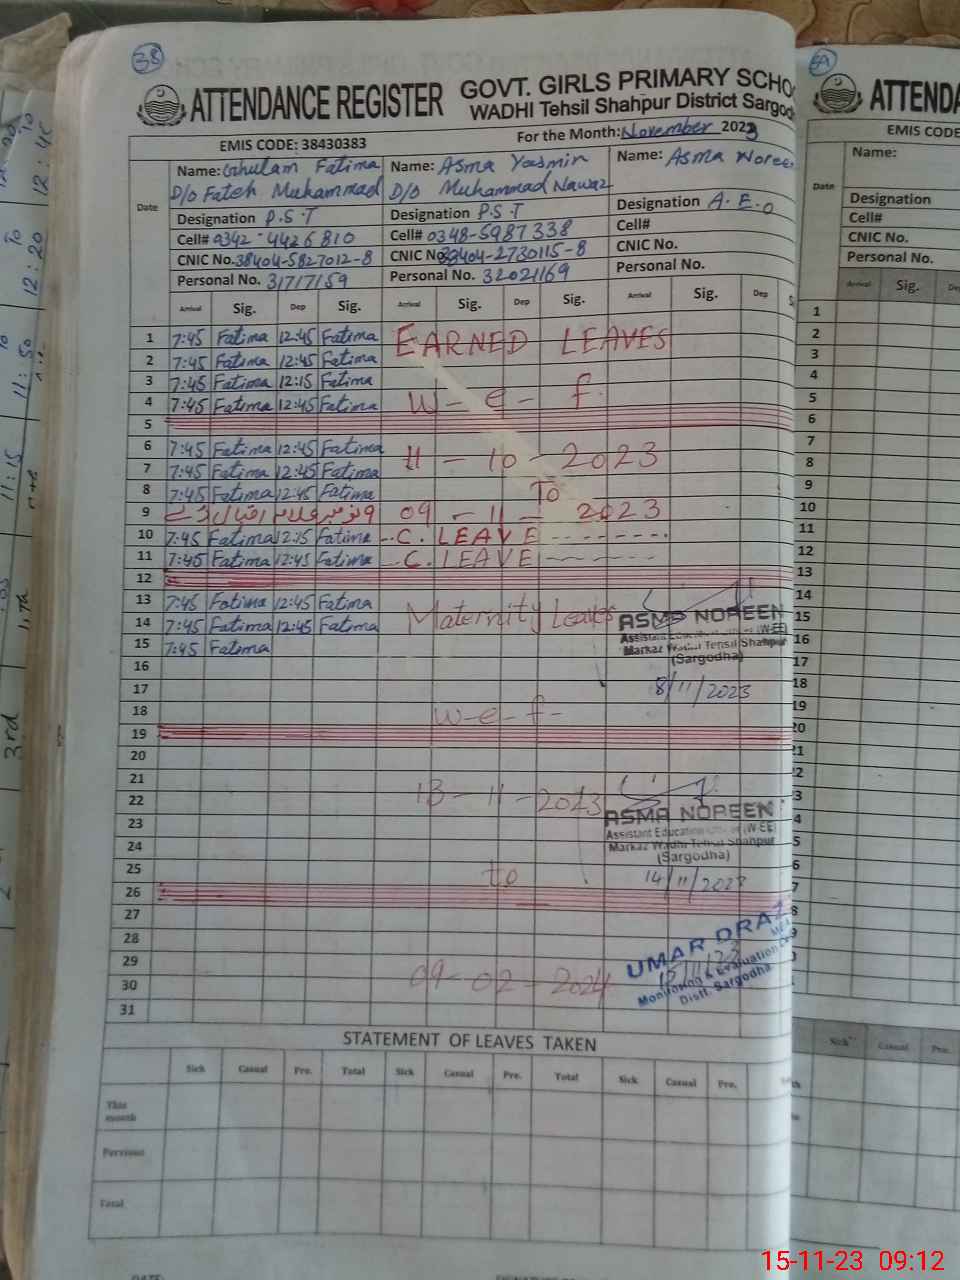 38
ATTENDANCE REGISTER
GOVT. GIRLS PRIMARY SCHO
WADHI Tehsil Shahpur District Sargod
EMIS CODE: 38430383
For the Month: November 2023
Date
Name: Ghulam Fatima
D/o Fateh Muhammad
Designation P.S.T
Cell# 0342-4426810
CNIC No. 38404-5827012-8
Personal No. 31717159
Name: Asma Yasmin
D/O Muhammad Nawaz
Designation P.S.T
Cell# 0348-5987338
CNIC No 38404-2730115-8
Personal No. 32021169
Name: Asma Noree
Designation A.E.O
Cell#
CNIC No.
Personal No.
Arrival Sig. Dep Sig. Arrival Sig. Dep Sig. Arrival Sig. Dep S
1 7:45 Fatima 12:45 Fatima EARNED LEAVES
2 7:45 Fatima 12:45 Fatima
3 7:45 Fatima 12:15 Fatima
4 7:45 Fatima 12:45 Fatima w-e-f
5
6 7:45 Fatima 12:45 Fatima
7 7:45 Fatima 12:45 Fatima 11-10-2023
8 7:45 Fatima 12:45 Fatima To
9 9 نومبر اقبال ڈے 09-11-2023
10 7:45 Fatima 12:15 Fatima C. LEAVE
11 7:45 Fatima 12:45 Fatima C. LEAVE
12
13 7:45 Fatima 12:45 Fatima Maternity Leaves
14 7:45 Fatima 12:45 Fatima
15 7:45 Fatima
ASMA NOREEN
Assistant Education (W-EE)
Markaz Wadhi Tehsil Shahpur
(Sargodha)
8/11/2023
16
17
18 w-e-f-
19
20
21
22 13-11-2023
23
24
ASMA NOREEN
Assistant Education (W-EE)
Markaz Wadhi Tehsil Shahpur
(Sargodha)
14/11/2023
25 to
26
27
28
29
30 09-02-2024
31
UMAR DRAZ
MEA
15/11/23
Monitoring & Evaluation
Distt. Sargodha
STATEMENT OF LEAVES TAKEN
Sick Casual Pre. Total Sick Casual Pre. Total Sick Casual Pre.
This month
Pervious
Total
ATTENDA
EMIS CODE
Date
Name:
Designation
Cell#
CNIC No.
Personal No.
Arrival Sig.
1
2
3
4
5
6
7
8
9
10
11
12
13
14
15
16
17
18
Sick Casual Pre.
3rd
15-11-23 09:12